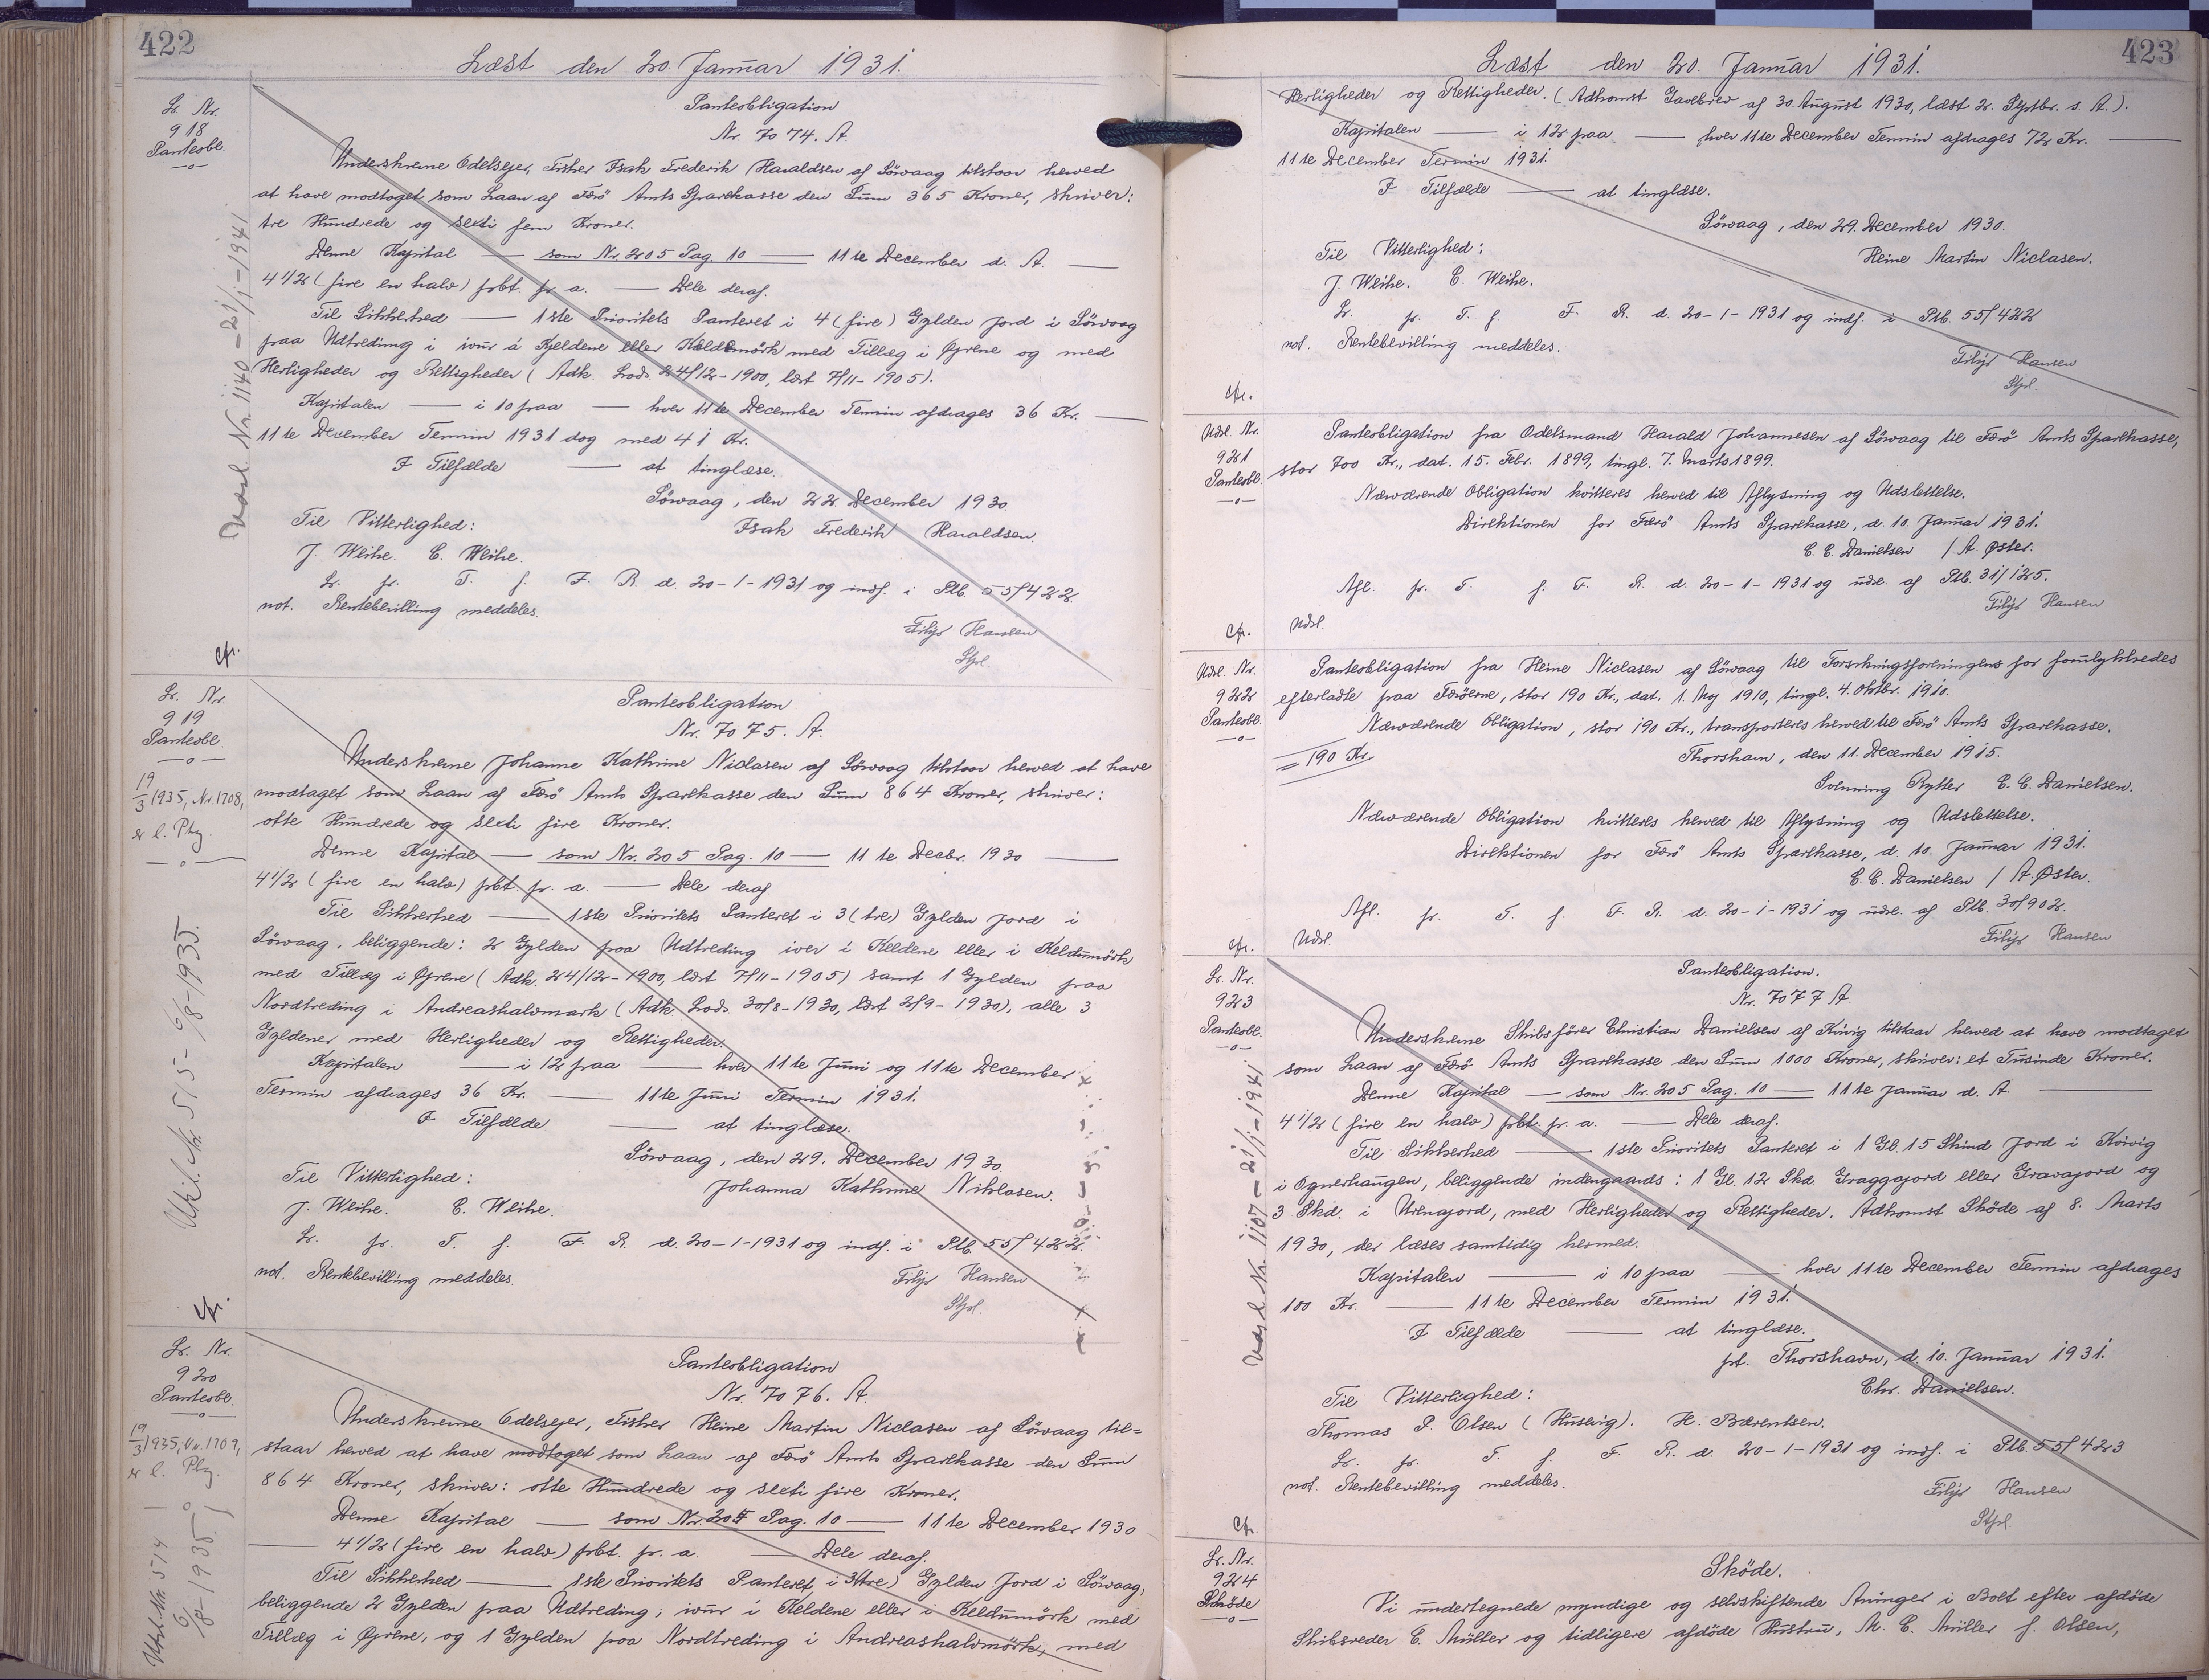 422
Læst den 20. Januar 1931.
Lr. Nr.
918
Panteobl.
Panteobligation
Nr. 7074. A.
Underskrevne Odelsejer, Fisher Isak Frederik Haraldsen af Sörvaag tilstaar herved
at have modtaget som Laan af Færö Amts Sparekasse den Sum 365 Kroner, skriver:
tre Hundrede og seksti fem Kroner.
Denne Kapital — som Nr. 205 Pag. 10 — 11te December d. A. —
4 1/2 (fire en halv) pbt. pr. a. — Dele deraf.
Til Sikkerhed — 1ste Prioritets Panteret i 4 (fire) Gylden Jord i Sörvaag
paa Udtreding i ivur á Kjeldene eller Keldumörk med Tillæg i Öjrene og med
Herligheder og Rettigheder (Adk. Lods. 24/12-1900, læst 7/11-1905).
Kapitalen — i 10 paa — hver 11te December Termin afdrages 36 Kr. —
11te December Termin 1931 dog med 41 Kr.
I Tilfælde — at tinglæse.
Sörvaag, den 22. December 1930.
Til Vitterlighed: Isak Frederik Haraldsen.
J. Weihe. C. Weihe.
Lr. pr. T. f. F. R. d. 20-1-1931 og indf. i Ptb. 55/422.
not. Rentebevilling meddeles.
Filip Hansen
Stpl.
cfr.
Udsl. Nr. 1140 - 21/1-1941
Lr. Nr.
919
Panteobl.
19/3 1935, Nr. 1708,
er l. Ptg.
Udsl. Nr. 515 - 6/8-1935.
Panteobligation
Nr. 7075. A.
Underskrevne Johanne Kathrine Niclasen af Sörvaag tilstaar herved at have
modtaget som Laan af Færö Amts Sparekasse den Sum 864 Kroner, skriver:
otte Hundrede og seksti fire Kroner.
Denne Kapital — som Nr. 205 Pag. 10 — 11te Decbr. 1930 —
4 1/2 (fire en halv) pbt. pr. a. — Dele deraf
Til Sikkerhed — 1ste Prioritets Panteret i 3 (tre) Gylden Jord i
Sörvaag, beliggende: 2 Gylden paa Udtreding iver i Keldene eller i Keldumörk
med Tillæg i Öjrene (Adk. 24/12-1900, læst 7/11-1905) samt 1 Gylden paa
Nordtreding i Andreashalvmark (Adk. Lods. 30/8-1930, læst 2/9-1930), alle 3
Gyldener med Herligheder og Rettigheder.
Kapitalen — i 12 paa — hver 11te Juni og 11te December
Termin afdrages 36 Kr. — 11te Juni Termin 1931.
I Tilfælde — at tinglæse.
Sörvaag, den 29. December 1930.
Til Vitterlighed: Johanna Kathrine Niklasen.
J. Weihe. C. Weihe.
Lr. pr. T. f. F. R. d. 20-1-1931 og indf. i Ptb. 55/422.
not. Rentebevilling meddeles.
Filip Hansen
Stpl.
cfr.
Lr. Nr.
920
Panteobl.
19/3 1935, Nr. 1709,
er l. Ptg.
Udsl. Nr. 514
6/8-1935.
Panteobligation
Nr. 7076. A.
Underskrevne Odelsejer, Fisher Heine Martin Niclasen af Sörvaag til=
staar herved at have modtaget som Laan af Færö Amts Sparekasse den Sum
864 Kroner, skriver: otte Hundrede og seksti fire Kroner.
Denne Kapital — som Nr. 205 Pag. 10 — 11te December 1930
— 4 1/2 (fire en halv) pbt. pr. a. — Dele deraf.
Til Sikkerhed — 1ste Prioritets Panteret i 3 (tre) Gylden Jord i Sörvaag,
beliggende 2 Gylden paa Udtreding, ivur i Keldene eller i Keldumörk med
Tillæg i Öjrene, og 1 Gylden paa Nordtreding i Andreashalvmörk, med
423
Læst den 20. Januar 1931.
Herligheder og Rettigheder. (Adkomst Gavebrev af 30. August 1930, læst 2. Septbr. s. A.).
Kapitalen — i 12 paa — hver 11te December Termin afdrages 72 Kr. —
11te December Termin 1931.
I Tilfælde — at tinglæse.
Sörvaag, den 29. December 1930.
Til Vitterlighed: Heine Martin Niclasen.
J. Weihe. C. Weihe.
Lr. pr. T. f. F. R. d. 20-1-1931 og indf. i Ptb. 55/422
not. Rentebevilling meddeles.
Filip Hansen
Stpl.
cfr.
Udsl. Nr.
921
Panteobl.
Panteobligation fra Odelsmand Harald Johannesen af Sörvaag til Færö Amts Sparekasse,
stor 700 Kr., dat. 15. Febr. 1899, tingl. 7. Marts 1899.
Nærværende Obligation kvitteres herved til Aflysning og Udslettelse.
Direktionen for Færö Amts Sparekasse, d. 10. Januar 1931.
C. C. Danielsen / A. Öster.
Afl. pr. T. f. F. R. d. 20-1-1931 og udsl. af Ptb. 31/125.
Filip Hansen
Udsl.
cfr.
Udsl. Nr.
922
Panteobl.
Panteobligation fra Heine Niclasen af Sörvaag til Forsikringsforeningens for forulykkedes
efterladte paa Færöerne, stor 190 Kr., dat. 1. Maj 1910, tingl. 4. Oktbr. 1910.
Nærværende Obligation, stor 190 Kr., transporteres herved til Færö Amts Sparekasse.
= 190 Kr. Thorshavn, den 11. December 1915.
Rytter C. C. Danielsen.
Nærværende Obligation kvitteres herved til Aflysning og Udslettelse.
Direktionen for Færö Amts Sparekasse, d. 10. Januar 1931.
C. C. Danielsen / A. Öster.
Afl. pr. T. f. F. R. d. 20-1-1931 og udsl. af Ptb. 30/902.
Udsl. Filip Hansen
cfr.
Lr. Nr.
923
Panteobl.
Udsl. Nr. 1107 - 21/1-1941
Panteobligation.
Nr. 7077 A.
Underskrevne Skibsfører Christian Danielsen af Kvivig tilstaar herved at have modtaget
som Laan af Færö Amts Sparekasse den Sum 1000 Kroner, skriver: et Tusinde Kroner.
Denne Kapital — som Nr. 205 Pag. 10 — 11te Januar d. A. —
4 1/2 (fire en halv) pbt. pr. a. — Dele deraf.
Til Sikkerhed — 1ste Prioritets Panteret i 1 Gl. 15 Skind Jord i Kvivig
i Ognerhaugen, beliggende indengaards: 1 Gl. 12 Skd. Graggajord eller Gravajord og
3 Skd. i Urenajord, med Herligheder og Rettigheder. Adkomst Sköde af 8. Marts
1930, der læses samtidig hermed.
Kapitalen — i 10 paa — hver 11te December Termin afdrages
100 Kr. — 11te December Termin 1931.
I Tilfælde — at tinglæse.
pt. Thorshavn, d. 10. Januar 1931.
Til Vitterlighed: Chr. Danielsen.
Thomas P. Olsen (Husevig). H. Bærentsen.
Lr. pr. T. f. F. R. d. 20-1-1931 og indf. i Ptb. 55/423
not. Rentebevilling meddeles.
Filip Hansen
Stpl.
cfr.
Lr. Nr.
924
Sköde
Sköde.
Vi undertegnede myndige og selvskiftende Arvinger i Boet efter afdöde
Skibsreder C. Müller og tidligere afdöde Hustru, M. C. Müller f. Olsen,